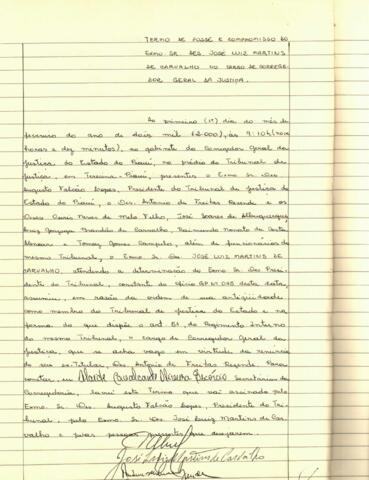 TERMO DE POSSE E COMPROMISSO DO
EXMO SR. DES. JOSÉ LUIZ MARTINS
DE CARVALHO NO CARGO DE CORREGE-
DOR GERAL DA JUSTIÇA.
Ao primeiro (1º) dia do mês de
fevereiro do ano de dois mil (2.000), às 9:10h (nove
horas e dez minutos), no gabinete do Corregedor Geral da
Justiça do Estado do Piauí, no prédio do Tribunal de
Justiça, em Teresina-Piauí, presentes o Exmo Sr. Des.
Augusto Falcão Lopes, Presidente do Tribunal de Justiça do
Estado do Piauí, o Des. Antonio de Freitas Rezende e os
Deses Osiris Neves de Melo Filho, José Soares de Albuquerque,
Luiz Gonzaga Brandão de Carvalho, Raimundo Nonato da Costa
Alencar e Tomaz Gomes Campelo, além de funcionários do
mesmo Tribunal, o Exmo. Sr. Des. JOSÉ LUIZ MARTINS DE
CARVALHO, atendendo a determinação do Exmo Sr. Des. Presi-
dente do Tribunal, constante do ofício GP Nº 075 desta data,
assumiu, em razão da ordem de sua antiguidade
como membro do Tribunal de Justiça do Estado e na
forma do que dispõe o art. 81, do Regimento Interno
do mesmo Tribunal, o cargo de Corregedor Geral da
Justiça, que se acha vago em virtude da renúncia
do seu ex-titular, Des. Antonio de Freitas Rezende. Para
constar, eu Cavalcante Secretária da
Corregedoria, lavrei este Termo que vai assinado pelo
Exmo. Sr. Des. Augusto Falcão Lopes, Presidente do Tri-
bunal, pelo Exmo. Sr. Des. José Luiz Martins de Car-
valho e pelas pessoas presentes que desejarem.
José Luiz Martins de Carvalho